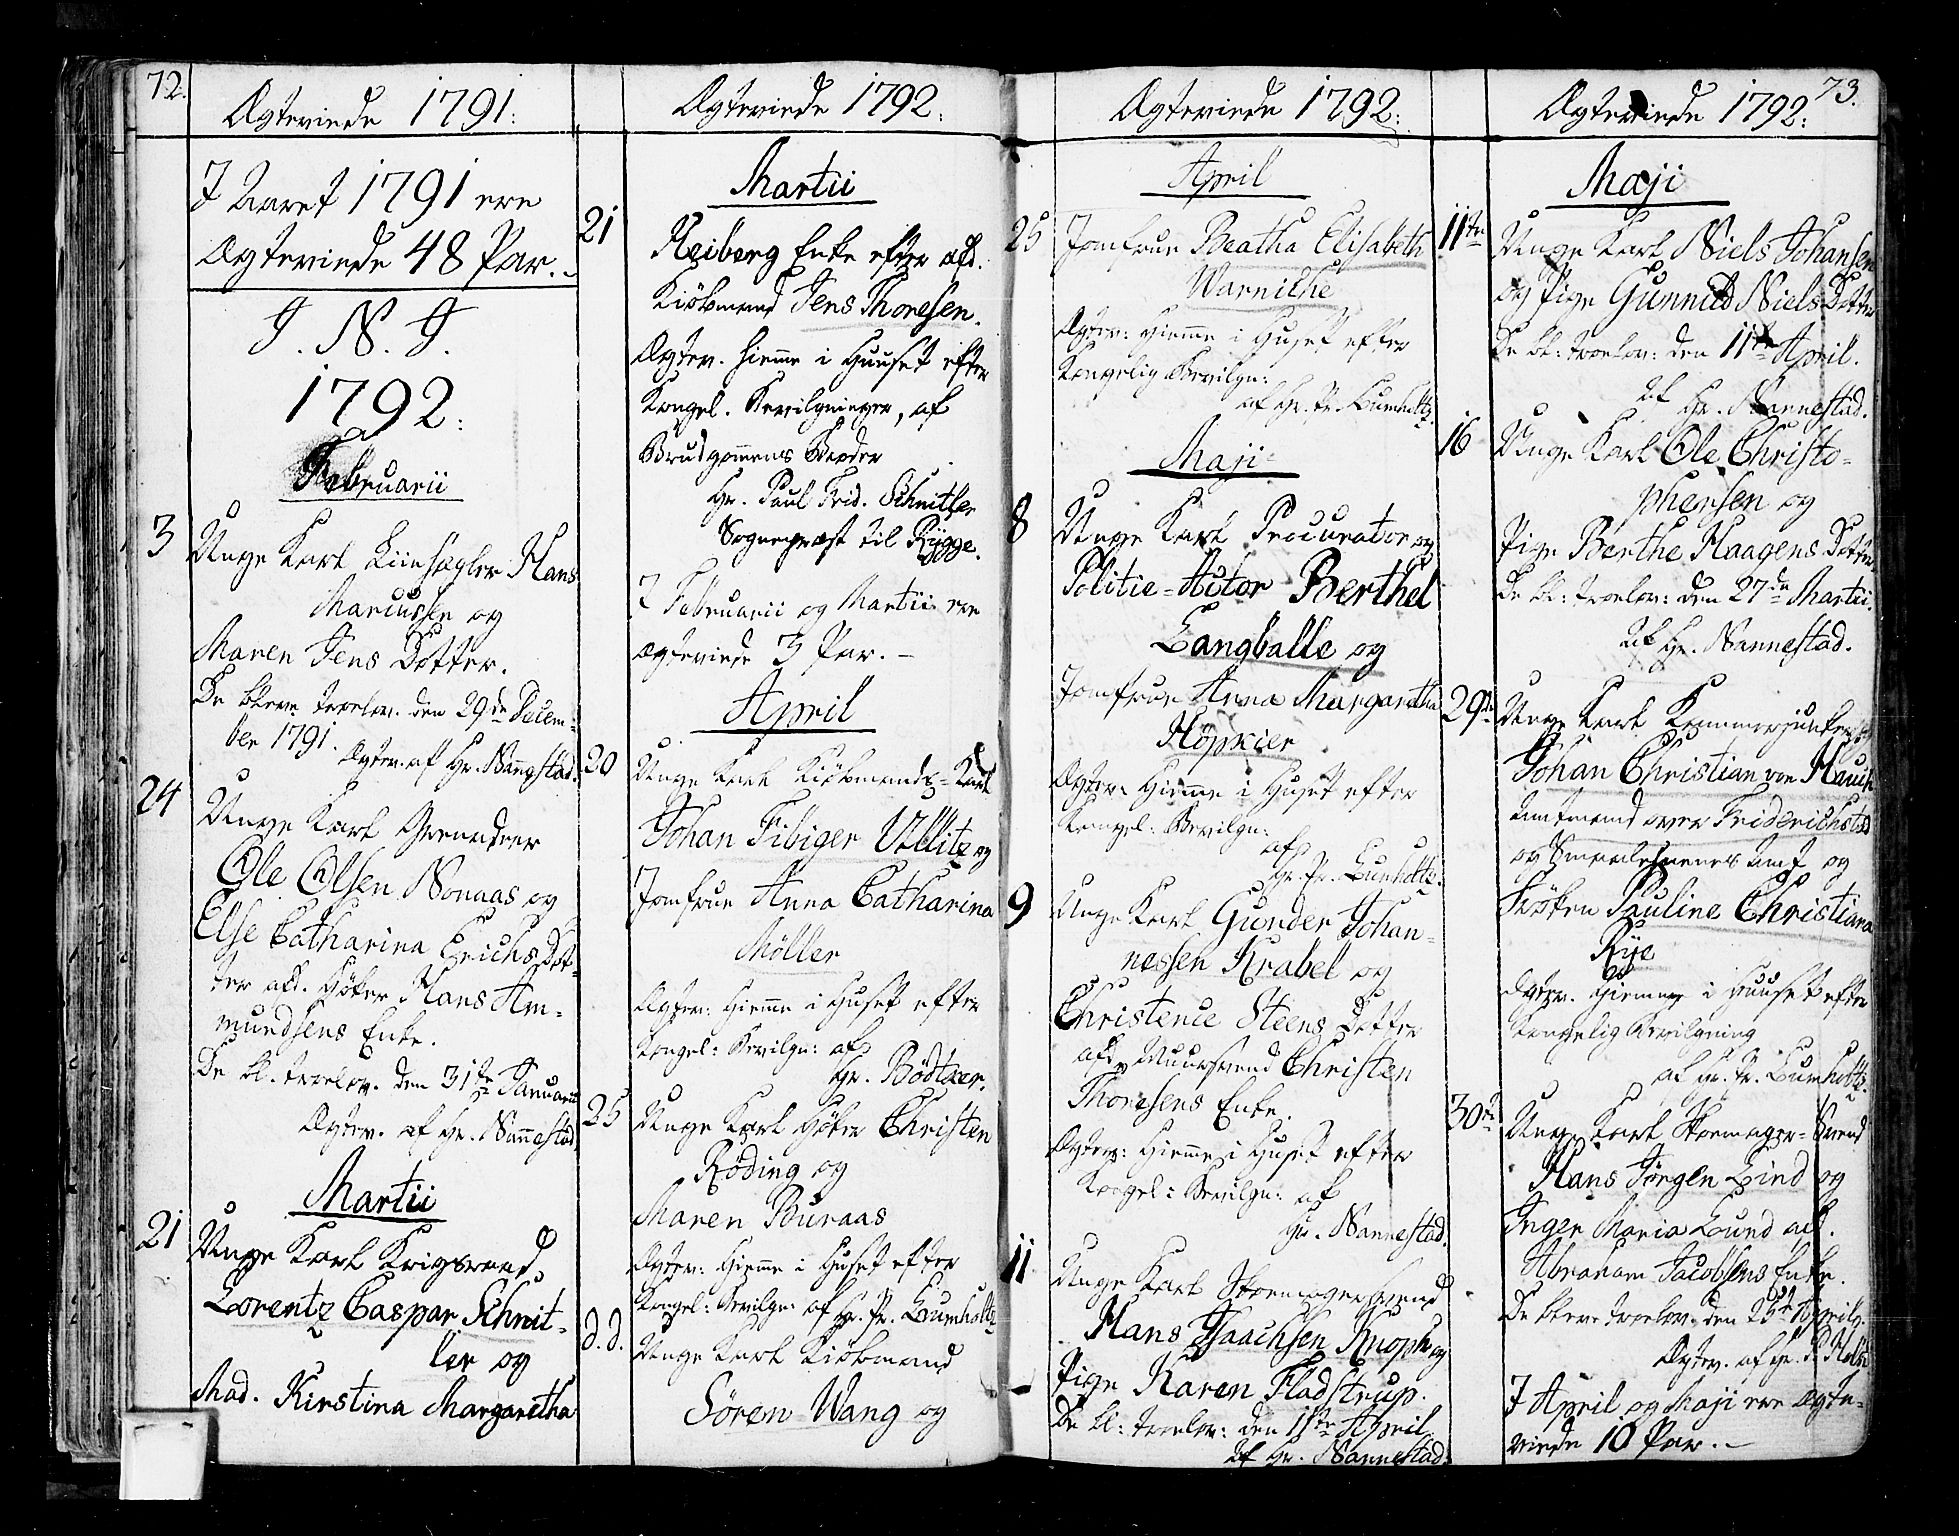 72.
Ægteviede 1791:
I Aaret 1791 ere
Ægteviede 48 Par.
I. N. J.
1792.
Februarii
3 Unge Karl Liinhægler Hans
Marcussen og
Maren Jens Dotter.
De bleve troelov. den 29de Decem-
ber 1791.
Ægtev. af Hr. Nannestad.
24 Unge Karl
Ole Olsen Nonaas og
Else Catharina Erichs Dot-
ter afd. Höker Hans Am-
mundsens Enke.
De bl. troelov. den 31te Januarii
Ægtev. af Hr. Nannestad.
Martii
21 Unge Karl Krigsraad
Lorentz Caspar Schnit-
ler og
Mad. Kirstina Margaretha
Ægteviede 1792.
Martii
21 Heiberg Enke efter afd.
Kiöbmand Jens Thoresen.
Ægtev. hieme i Huuset efter
Kongel. Bevilgninger, af
Brudgomens Broder
Hr. Paul Frid. Schnitler
Sognepræst til Rygge.
I Februarii og Martii ere
ægteviede 3 Par.
April
20 Unge Karl Kiöbmands-Karl
Johan Fibiger Ullitz og
Jomfrue Anna Catharina
Möller
Ægtev: hieme i Huset efter
Kongel: Bevilgn: af
Hr. Bödtker.
25 Unge Karl Höker Christen
Röding og
Maren Buraas
Ægtev: hieme i Huset efter
Kongel: Bevilgn: af Hr. Pr. Lumholtz
d. d. Unge Karl Kiöbmand
Sören Wang og
Ægteviede 1792.
April
25 Jomfrue Beatha Elisabeth
Warniche
Ægtev: hieme i Huset efter
Kongelig Bevilgn:
af Hr. Pr. Lumholtz.
Maji
8 Unge Karl Procurator og
Politie-Actor Berthel
Langballe og
Jomfrue Anna Margaretha
Höpner
Ægtev: hieme i Huset efter
Kongel: Bevilgn:
af
Hr. Pr. Lumholtz.
9 Unge Karl Gunder Johan-
nessen Krabel og
Christence Steens Dotter
afd. Muursvend Christen
Thoresens Enke.
Ægtev: hieme i Huset efter
Kongel: Bevilgn: af
Hr. Nannestad.
11 Unge Karl Skomagersvend
Hans Isaachsen Knoph og
Pige Karen Fladstrup.
De bl: troelov: den 11te April
Af Hr. Nannestad.
73.
Ægteviede 1792:
Maji
11te Unge Karl Niels Johansen
og Pige Gunnild Niels Dotter
De bl: troelov: den 11te April.
Af Hr. Nannestad.
16 Unge Karl Ole Christo-
phersen og
Pige Berthe Haagens Dotter
De bl: troelov: den 27de Martii.
Af Hr. Nannestad.
29de Unge Karl Kammerjunker
Johan Christian von Hauch
Amtmand over Friderichstad
og Smaalehnenes Amt og
Fröken Pauline Christiana
Rye
Ægtev. hieme i Huuset efter
Kongelig Bevilgning
af Hr. Pr. Lumholtz.
30te Unge Karl Skomager-Svend
Hans Jörgen Lind og
Inger Maria Lund afd.
Abraham Jacobsens Enke.
De bleve troelov: den 25de Aprilis.
Ægtev. af Hr. P. Holst
I April og Maji ere Ægte-
viede 10 Par.